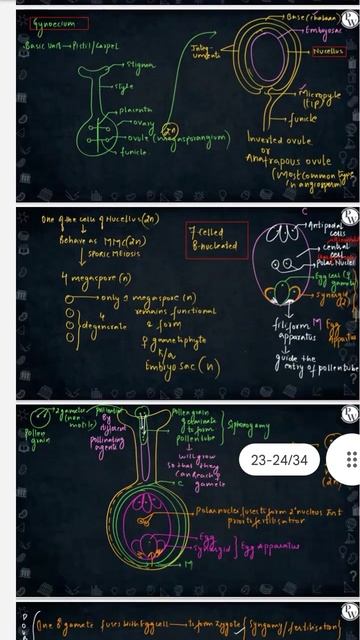 Gynoecium
Basic unit → Pistil/Carpel
Stigma
style
placenta
ovary
ovule (megasporangium)
(2n)
funicle
Integuments
Base/Chalaza
Embryosac
Nucellus
Micropyle
(tip)
funicle
Inverted ovule
or
Anatrapous ovule
(Most common type
in angiosperm)
One of the cells of Nucellus (2n)
Behave as MMC (2n)
sporic MEIOSIS
4 megaspore (n)
only 1 megaspore (n)
remains functional
& form
♀ gametophyte
k/a
Embryo sac (n)
degenerate
7 celled
8-nucleated
C
Antipodal
cells
central
cell
Polar Nuclei
Egg cell (♀
gamete)
synergid
filiform
apparatus
M
Egg
guide the
entry of pollen tube
2 gametes
(non
motile)
Pollen
grain
By
Pollinating
agents
Pollen grain
germinate
to form
Pollen tube
Siphonogamy
will grow
so that they
can reach ♀
gamete
C
23-24/34
Polar nucleus fuses to form 2° nucleus Just
prior to fertilisation
Egg
Synergid
Egg apparatus
M
One ♂ gamete fuses with Egg cell → to form zygote (Syngamy/fertilisation)